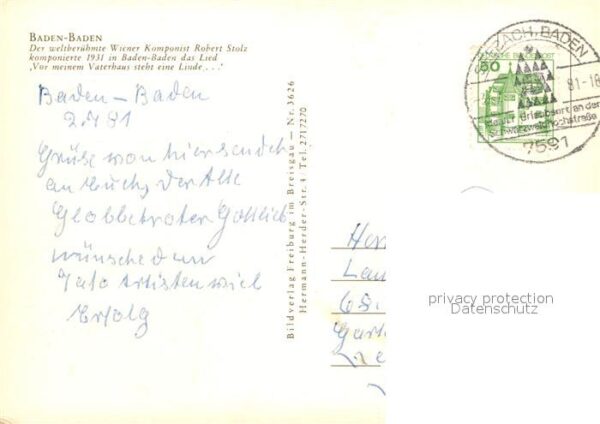 BADEN-BADEN
Der weltberühmte Wiener Komponist Robert Stolz
komponierte 1931 in Baden-Baden das Lied
„Vor meinem Vaterhaus steht eine Linde, . . .“
Baden – Baden
81
Grüße von hier sendet
an Euch, der Alte
Globbetroter Gottlieb
wünsche
Artisten viel
Erfolg
Bildverlag Freiburg im Breisgau — Nr. 3626
Hermann-Herder-Str. 4 · Tel. 2717270
BADEN
BUNDESPOST
50
81-18
Urlaubsort an der
Schwarzwaldhochstraße
7591
privacy protection
Datenschutz